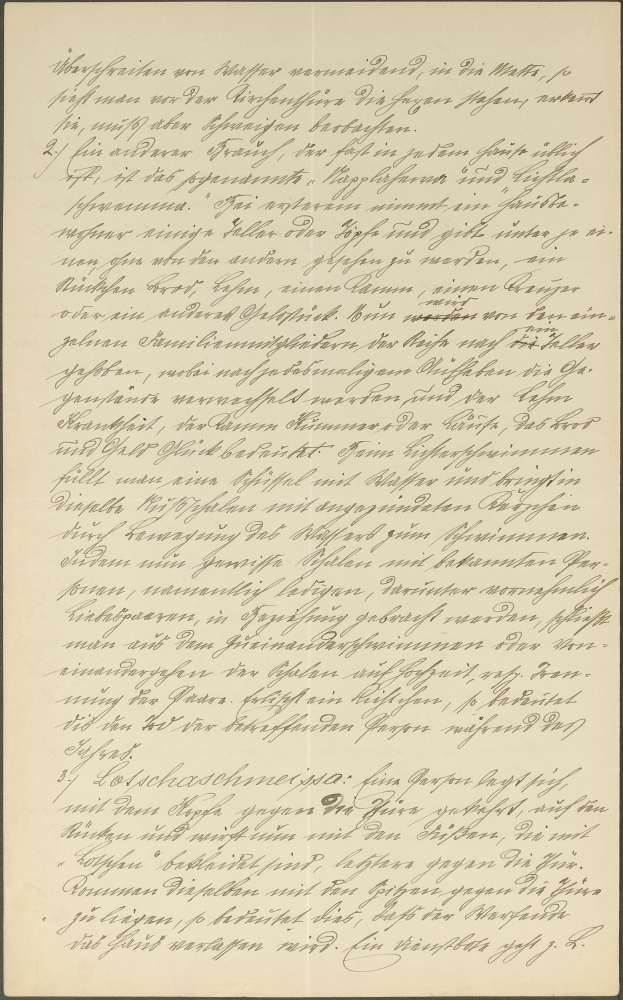 Überschreiten von Wasser vermeidend, in die Mette, so
sieht man vor der Kirchenthüre die Hexen stehen, erkennt
sie, muß aber Schweigen beobachten.
2.) Ein anderer Brauch, der fast in jedem Hause üblich
ist, ist das sogenannte „Napplahewa" und „Lichtla=
schwemma." Bei ersterem nimmt ein Hausbe=
wohner einige Teller oder Töpfe und gibt unter je ei=
nen, ohne von den andern gesehen zu werden, ein
Stückchen Brod, Lehm, einen Kamm, einen Kreuzer
oder ein anderes Geldstück. Nun wird von den ein=
zelnen Familienmitgliedern der Reihe nach ein Teller
gehoben, wobei nach jedesmaligem Aufheben die Ge=
genstände verwechselt werden, und der Lehm
Krankheit, der Kamm Kummer oder Läuse, das Brod
und Geld Glück bedeutet. Beim Lichterschwimmen
füllt man eine Schüssel mit Wasser und bringt in
dieselbe Nußschalen mit angezündeten Kerzchen
durch Bewegung des Wassers zum Schwimmen.
Indem nun gewisse Schalen mit bekannten Per=
sonen, namentlich ledigen, darunter vornehmlich
Liebespaaren, in Beziehung gebracht werden, schließt
man aus dem Zueinanderschwimmen oder Von=
einandergehen der Schalen auf Hochzeit, resp. Tren=
nung der Paare. Erlischt ein Lichtchen, so bedeutet
dies den Tod der betreffenden Person während des
Jahres.
3.) Lotschaschmeissa: Eine Person legt sich,
mit dem Kopfe gegen die Thüre gekehrt, auf den
Rücken und wirft nun mit den Füßen, die mit
„Lotschen" bekleidet sind, letztere gegen die Thür.
Kommen dieselben mit den Spitzen gegen die Thüre
zu liegen, so bedeutet dies, daß der Werfende
das Haus verlassen wird. Ein Dienstbote geht z. B.